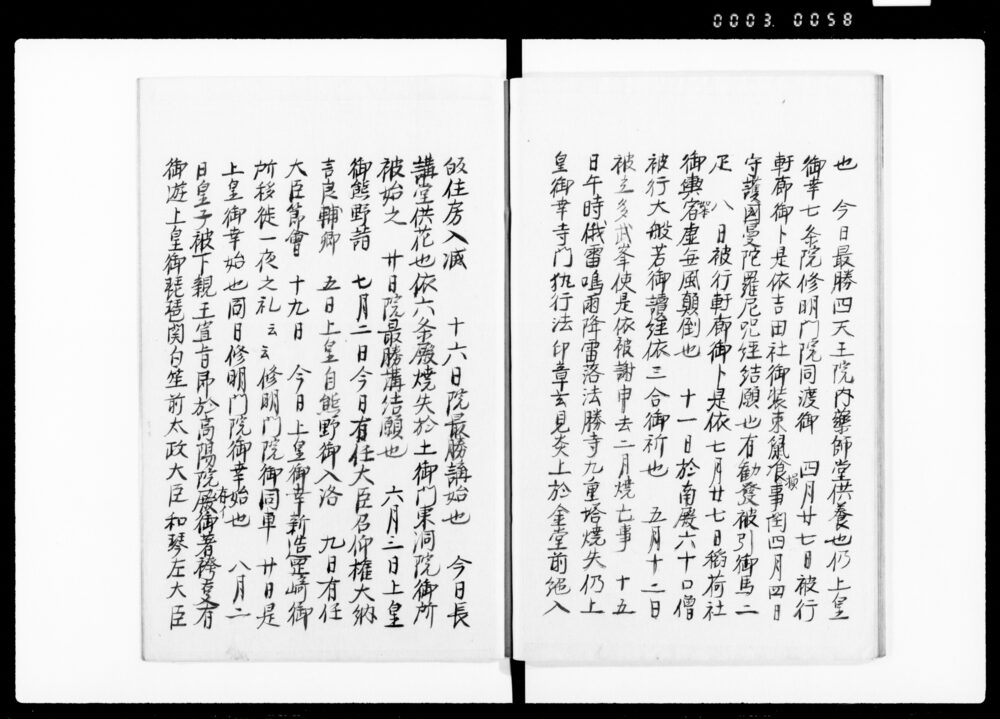 0003.0058
也　今日最勝四天王院内藥師堂供養也仍上皇
御幸七条院修明門院同渡御　四月廿七日被行
軒廊御卜是依吉田社御装束鼠食損事閏四月四日
守護國曼陀羅尼咒經結願也有勸發被引御馬二
疋　八日被行軒廊御卜是依七月廿七日稻荷社
御輿宿虚無風顛倒也　十一日於南殿六十口僧
被行大般若御讀経依三合御祈也　五月十二日
被立多武峯使是依被謝申去二月焼亡事　十五
日午時俄雷鳴雨降雷落法勝寺九重塔焼失仍上
皇御幸寺門执行法印章玄見炎上於金堂前絶入
皈住房入滅　十六日院最勝講始也　今日長
講堂供花也依六条殿焼失於土御門東洞院御所
被始之　廿日院最勝講结願也　六月三日上皇
御熊野詣　七月二日今日有任大臣召仰権大納
言良輔卿　五日上皇自熊野御入洛　九日有任
大臣節會　十九日　今日上皇御幸新造罡崎御
所移徙一夜之礼云云修明門院御同車　廿日是
上皇御幸始也同日修明門院御幸始也　八月二
日皇子被下親王宣旨即於高陽院殿有御著袴夏有
御遊上皇御琵琶関白笙前太政大臣和琴左大臣